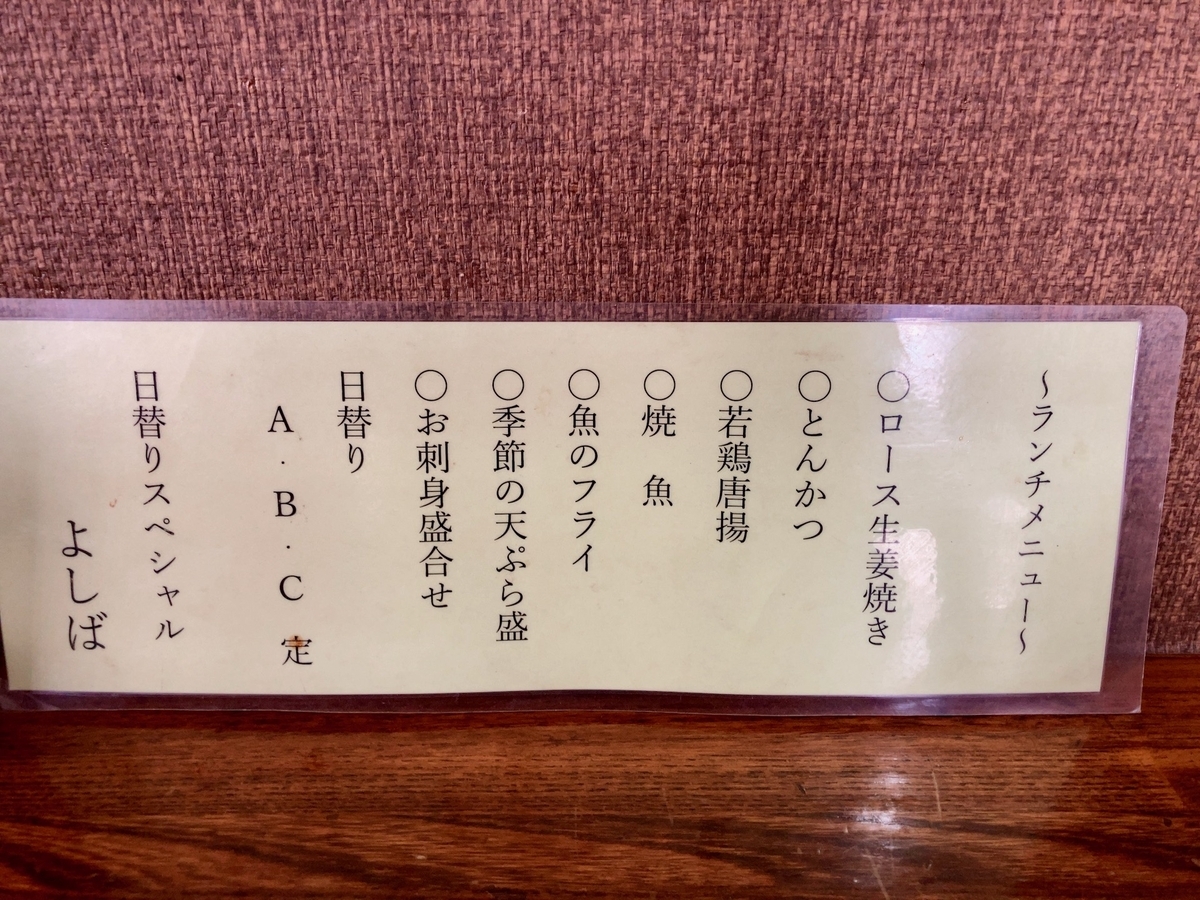 ～ランチメニュー～
○ロース生姜焼き
○とんかつ
○若鶏唐揚
○焼　魚
○魚のフライ
○季節の天ぷら盛
○お刺身盛合せ
日替り
A・B・C 定
日替りスペシャル
よしば